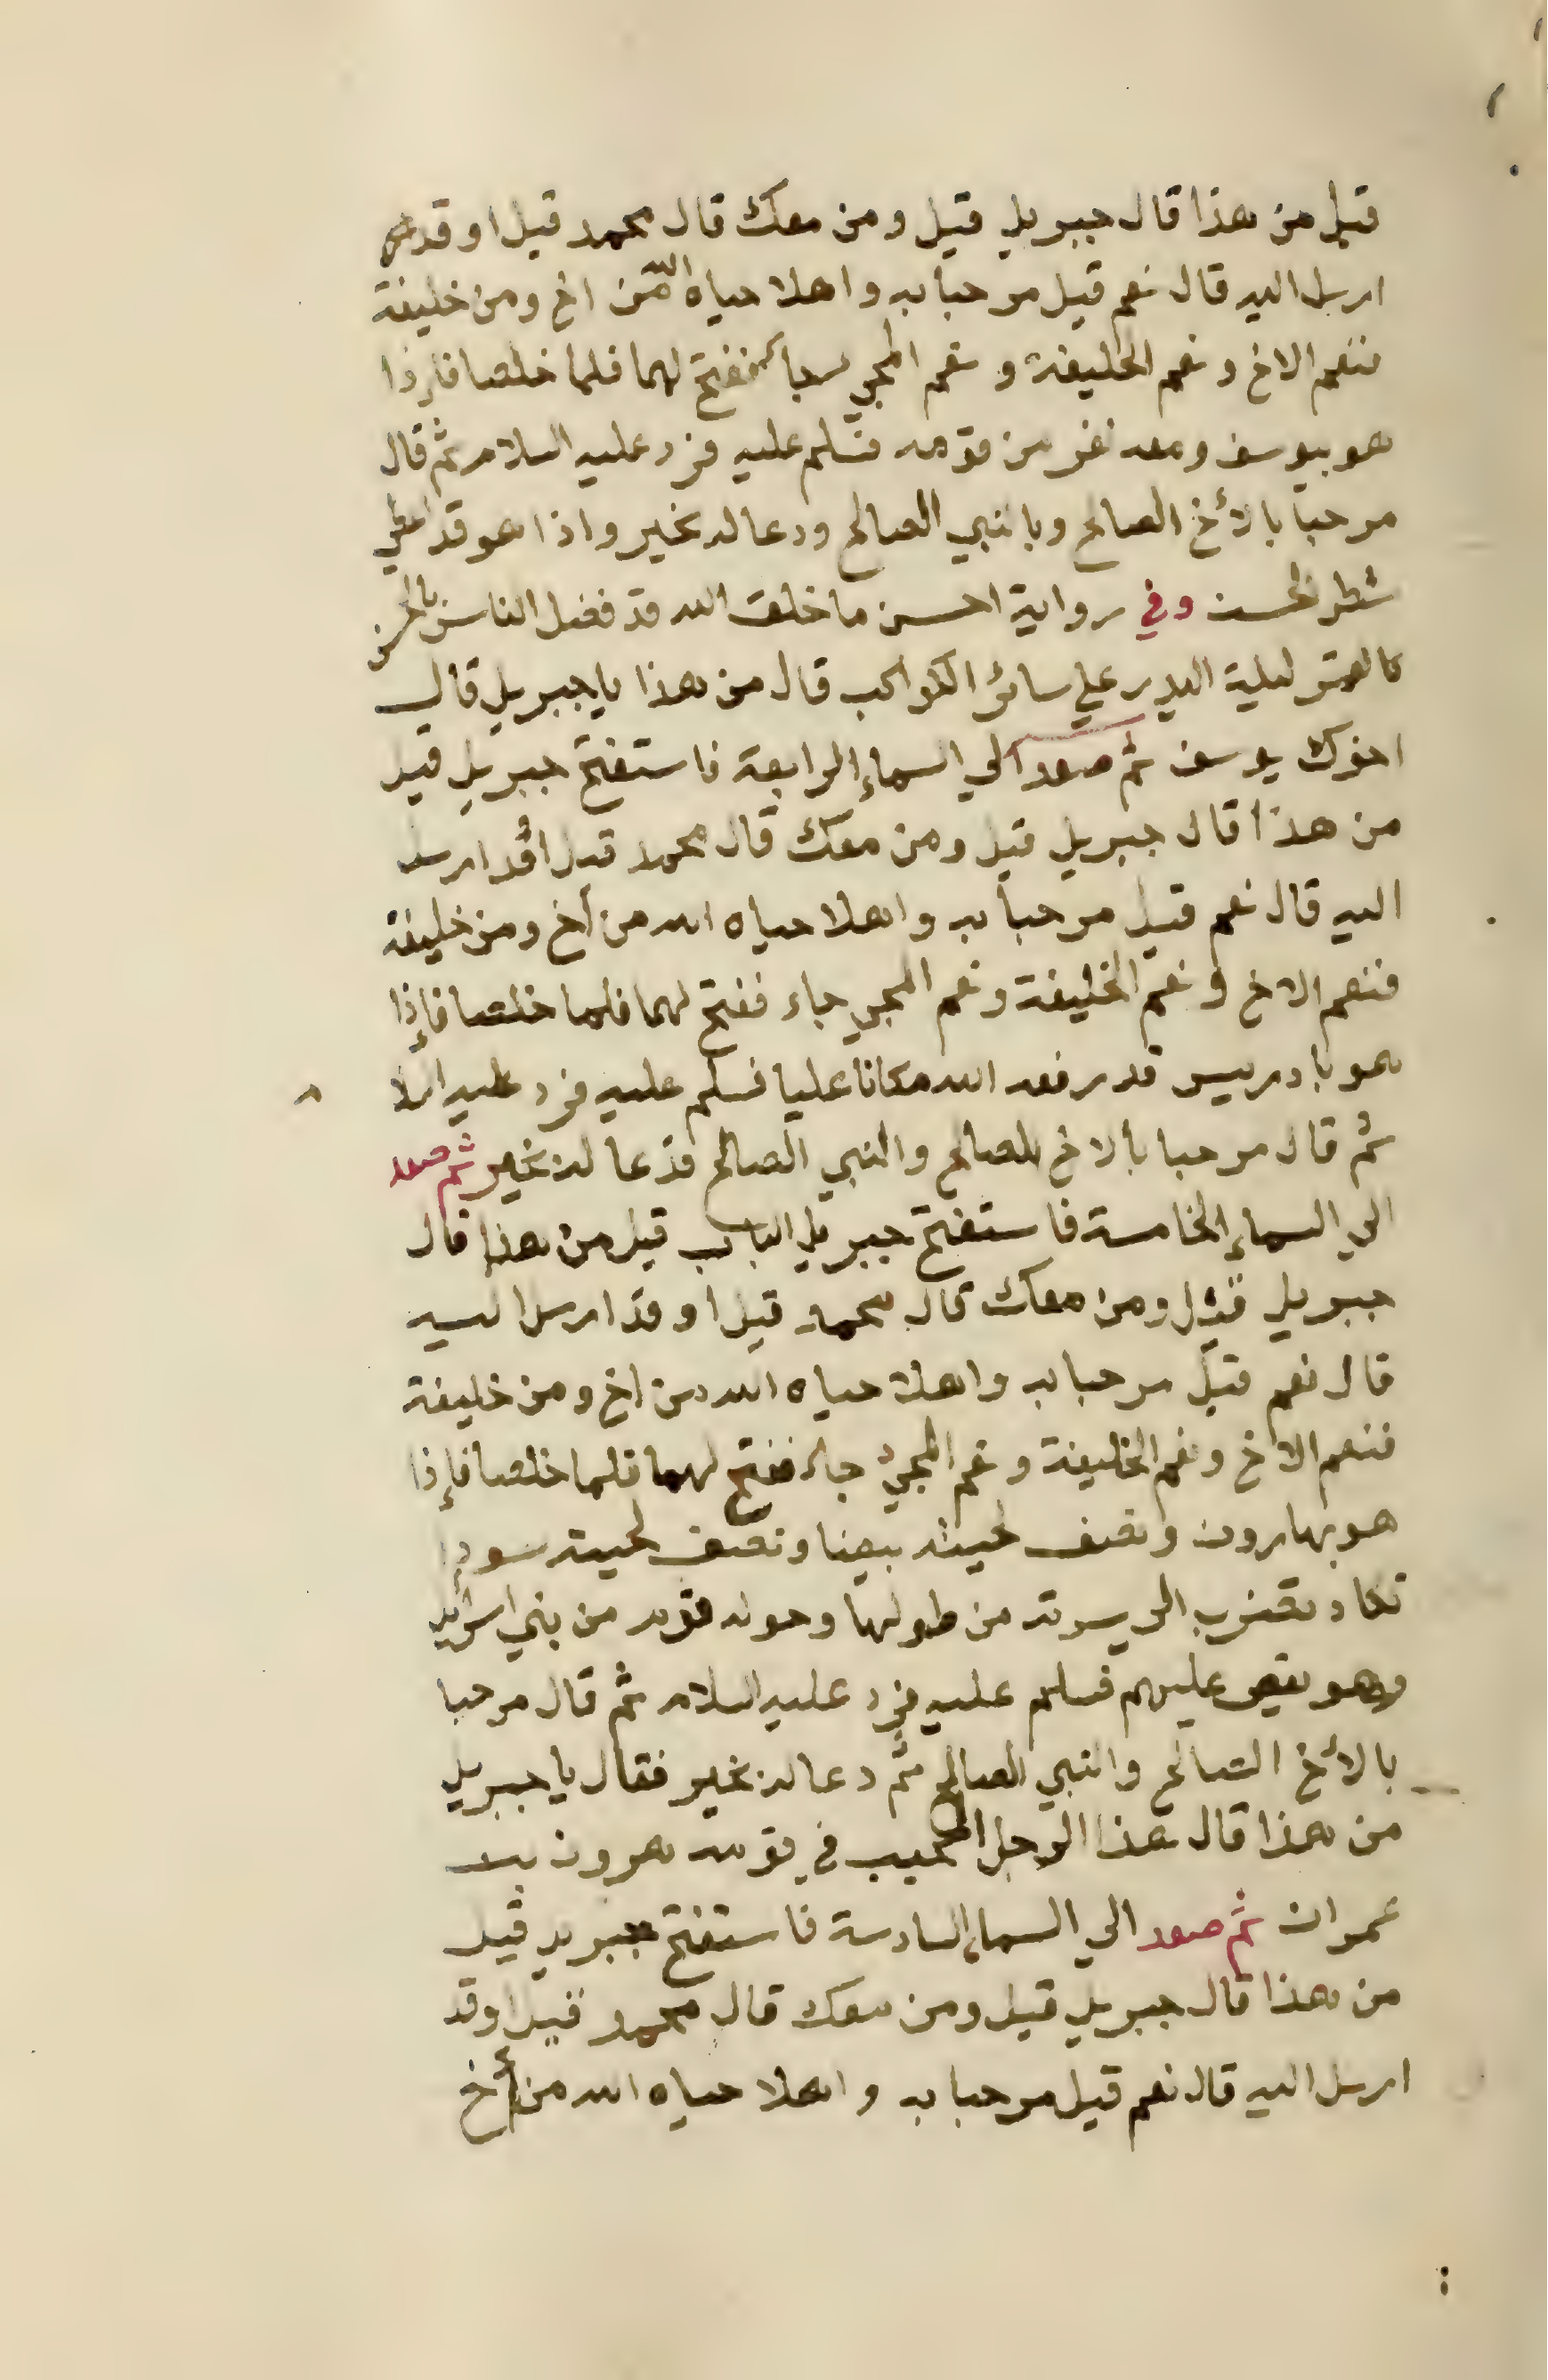 قيل من هذا قال جبريل قيل ومن معك قال محمد قيل او قد
ارسل اليه قال نعم قيل مرحبا به واهلا حياه الله من اخ ومن خليفة
فنعم الاخ ونعم الخليفة ونعم المجي جاء ففتح لهما فلما خلصا فاذا
هو بيوسف ومعه نفر من قومه فسلم عليه فرد عليه السلام ثم قال
مرحبا بالأخ الصالح وبالنبي الصالح ودعا له بخير واذا هو قد اعطي
شطر الحسن وفي رواية احسن ما خلق الله قد فضل الناس بالحسن
كالقمر ليلة البدر علي سائر الكواكب قال من هذا يا جبريل قال
اخوك يوسف ثم صعد الي السماء الرابعة فاستفتح جبريل قيل
من هذا قال جبريل قيل ومن معك قال محمد قيل اقد ارسل
اليه قال نعم قيل مرحبا به واهلا حياه الله من أخ ومن خليفة
فنعم الاخ ونعم الخليفة ونعم المجي جاء ففتح لهما فلما خلصا فإذا
هو بادريس قد رفعه الله مكانا عليا فسلم عليه فرد عليه السلا
ثم قال مرحبا بالاخ الصالح والنبي الصالح فدعا له بخير ثم صعد
الي السماء الخامسة فاستفتح جبريل الباب قيل من هذا قال
جبريل قيل ومن معك قال محمد قيل او قد ارسل اليه
قال نعم قيل مرحبا به واهلا حياه الله من اخ ومن خليفة
فنعم الاخ ونعم الخليفة ونعم المجئ جاء ففتح لهما فلما خلصا فإذا
هو بهارون ونصف لحيته بيضا ونصف لحيته سودا
تكاد تضرب الي سرته من طولها وحوله قوم من بني اسرائيل
وهو يقص عليهم فسلم عليه فرد عليه السلام ثم قال مرحبا
بالأخ الصالح والنبي الصالح ثم دعا له بخير فقال يا جبريل
من هذا قال هذا الرجل المحبب في قومه هرون بن
عمران ثم صعد الي السماء السادسة فاستفتح جبريل قيل
من هذا قال جبريل قيل ومن معك قال محمد قيل او قد
ارسل اليه قال نعم قيل مرحبا به واهلا حياه الله من أخ